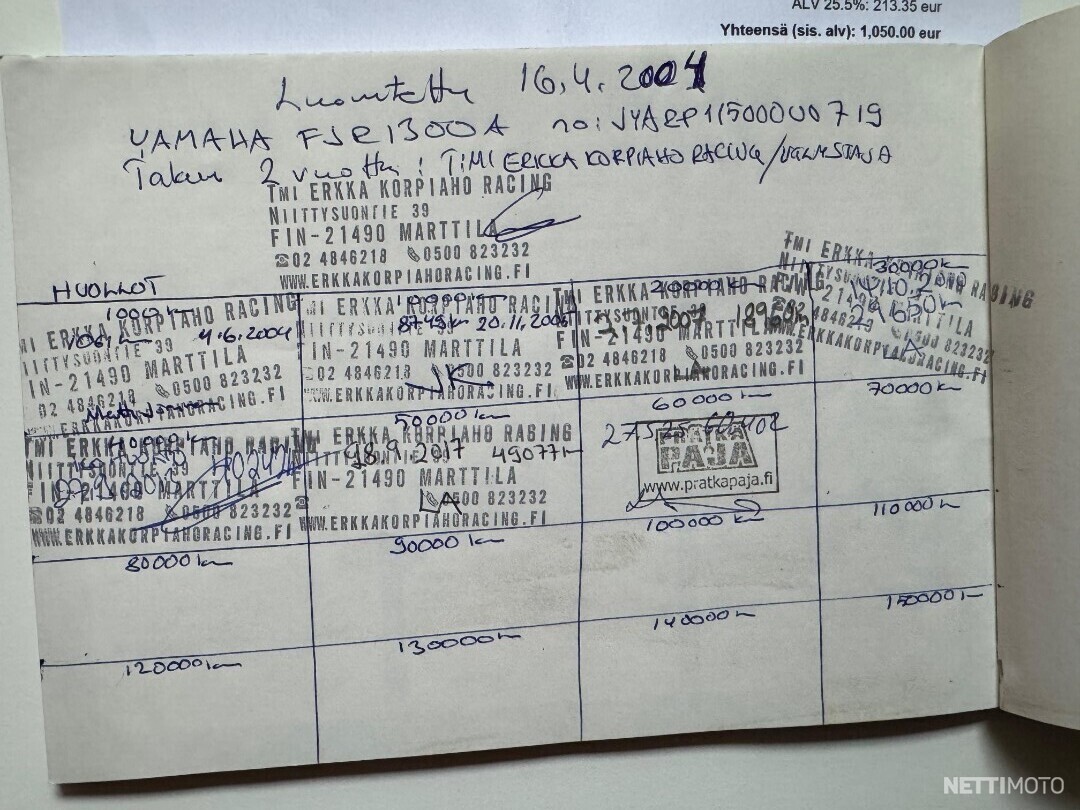 ALV 25.5%: 213.35 eur
Yhteensä (sis. alv): 1,050.00 eur
Luovutettu 16.4.2004
YAMAHA FJR1300A no: JYARP115000000719
Takuu 2 vuotta: TMI ERKKA KORPIAHO RACING/VALMISTAJA
TMI ERKKA KORPIAHO RACING
NIITTYSUONTIE 39
FIN-21490 MARTTILA
☎02 4846218 0500 823232
WWW.ERKKAKORPIAHORACING.FI
HUOLLOT
1000 km
10000 km
20000 km
30000 km
MI ERKKA KORPIAHO RACING
4.6.2004
NIITTYSUONTIE 39
IN-21490 MARTTILA
02 4846218 0500 823232
WWW.ERKKAKORPIAHORACING.FI
MI ERKKA KORPIAHO RACING
8749 km 20.11.2005
NIITTYSUONTIE
FIN-21490 MARTTILA
02 4846218 0500 823232
WWW.ERKKAKORPIAHORACING.FI
TMI ERKKA KORPIAHO RACING
NIITTYSUONTIE
2007
21490 MARTTILA
☎02 4846218 0500 823232
WWW.ERKKAKORPIAHORACING.FI
TMI ERKKA KORPIAHO RACING
NIITTYSUONTIE
21490 MARTTILA
0500 823232
ERKKAKORPIAHORACING.FI
40000 km
50000 km
60000 km
70000 km
TMI ERKKA KORPIAHO RACING
NIITTYSUONTIE 39
FIN-21490 MARTTILA
☎02 4846218 0500 823232
WWW.ERKKAKORPIAHORACING.FI
TMI ERKKA KORPIAHO RACING
NIITTYSUONTIE
18.9.2017 49077 km
FIN-21490 MARTTILA
02 4846218 0500 823232
WWW.ERKKAKORPIAHORACING.FI
PRATKA
PAJA
www.pratkapaja.fi
80000 km
90000 km
100000 km
110000 km
120000 km
130000 km
140000 km
150000 km
NETTIMOTO